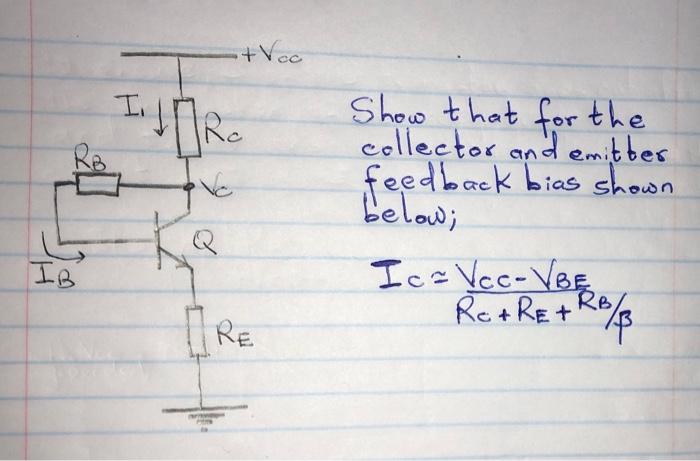 +Vcc
I₁
Rc
RB
Vc
Q
IB
RE
Show that for the
collector and emitter
feedback bias shown
below;
Ic ≃ Vcc - VBE
Rc + RE + RB/β